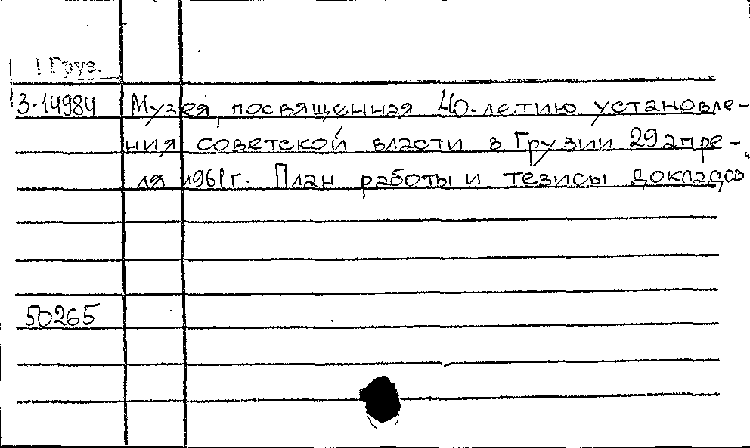 Груз.
3-14984 Музея, посвященная 40-летию установле-
ния советской власти в Грузии 29 апре-
ля 1961 г. План работы и тезисы докладов
50265